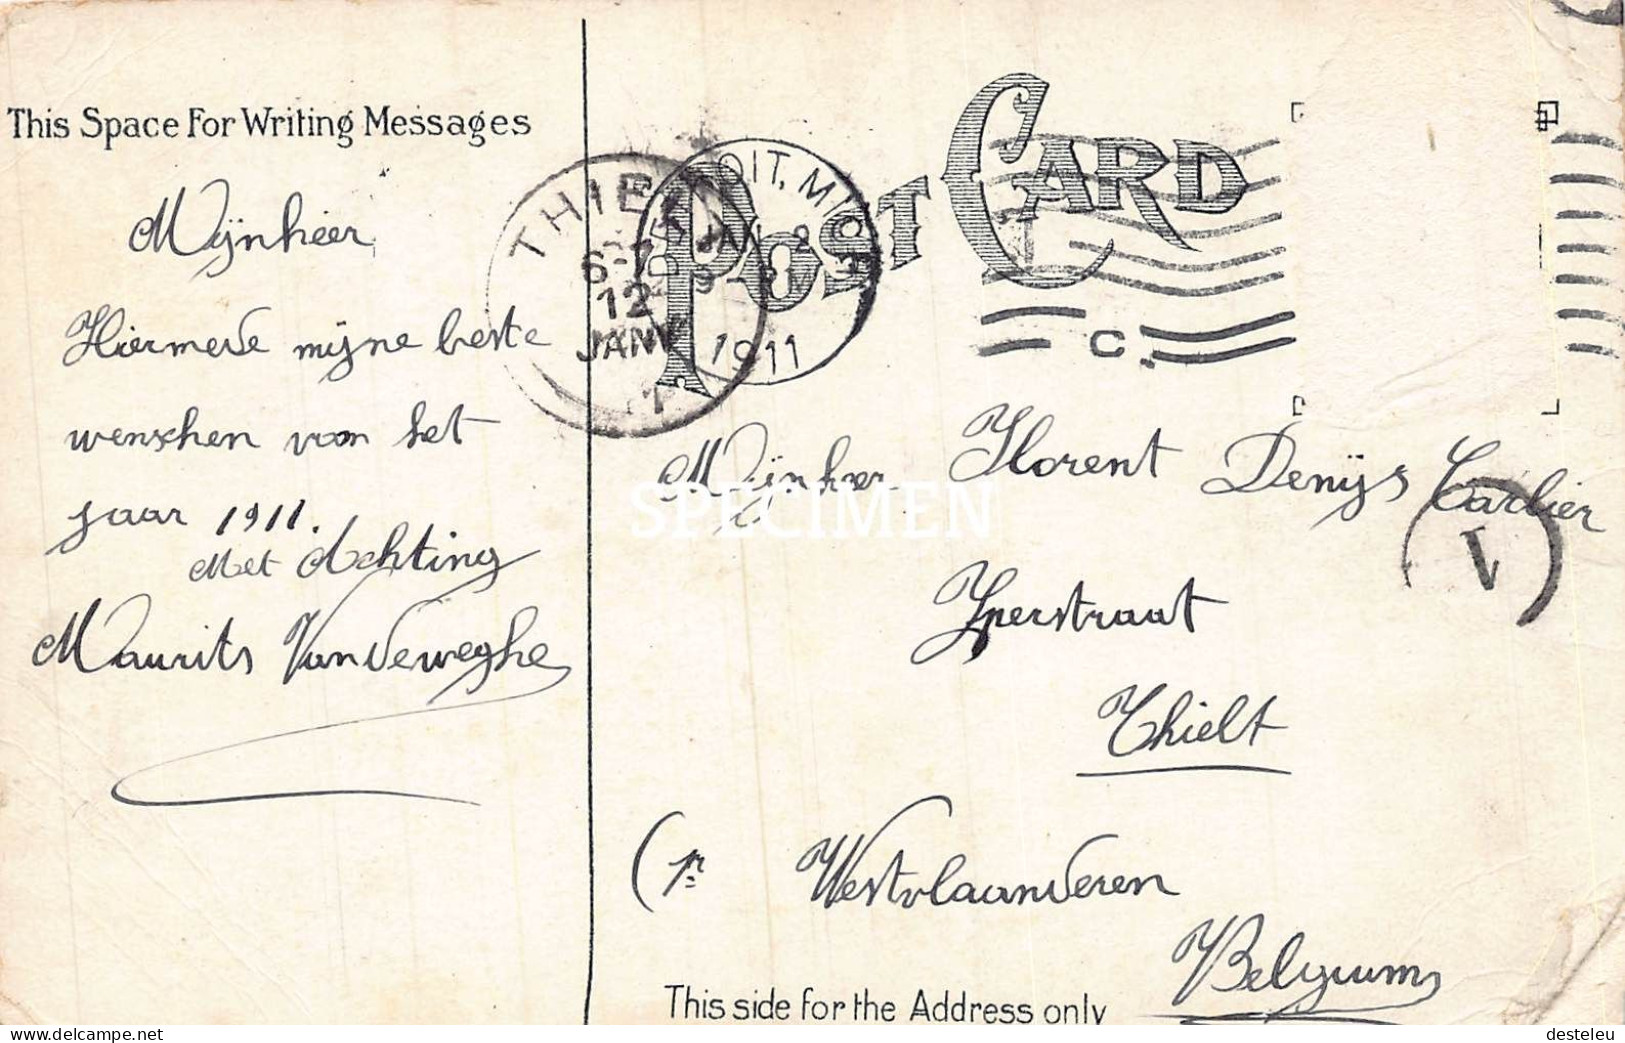 This Space For Writing Messages
POST CARD
THIELT
6-7
12
JANV
DETROIT, MICH.
JAN 2
9-PM
1911
C.
Mijnheer
Hiermede mijne beste
wenschen voor het
jaar 1911.
Met Achting
Maurits Vandeweghe
Mijnheer Florent Denijs Carlier
1
Yperstraat
Thielt
(pr Westvlaanderen
Belgium
SPECIMEN
This side for the Address only
www.delcampe.net
desteleu